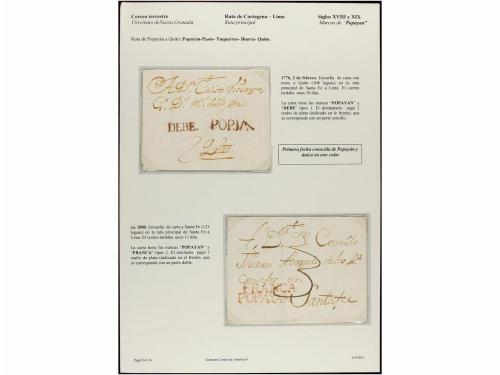 Correo terrestre
Virreinato de Nueva Granada
Ruta de Cartagena – Lima
Ruta principal
Siglos XVIII y XIX
Marcas de "Popayan"
Ruta de Popayán a Quito: Popayán-Pasto- Tuquerres- Ibarra- Quito.
1776, 2 de febrero. Envuelta de carta con
texto a Quito (104 leguas) en la ruta
principal de Santa Fe a Lima. El correo
tardaba unos 16 días.
La carta tiene las marcas "POPAYAN" y
"DEBE" tipos 1. El destinatario pagó 2
reales de plata (indicado en el frente), que
se corresponde con un porte sencillo.
DEBE. POPIA
Quito.
Primera fecha conocida de Popayán y
única en este color
ca. 1808. Envuelta de carta a Santa Fe (123
leguas) en la ruta principal de Santa Fe a
Lima. El correo tardaba unos 13 días.
La carta tiene las marcas "POPAYAN" y
"FRANCA" tipos 2. El remitente pagó 3
reales de plata (indicado en el frente), que
se corresponde con un porte doble.
Camilo
3
FRANCA
POPAYAN
Santafee
Page 8 of 16